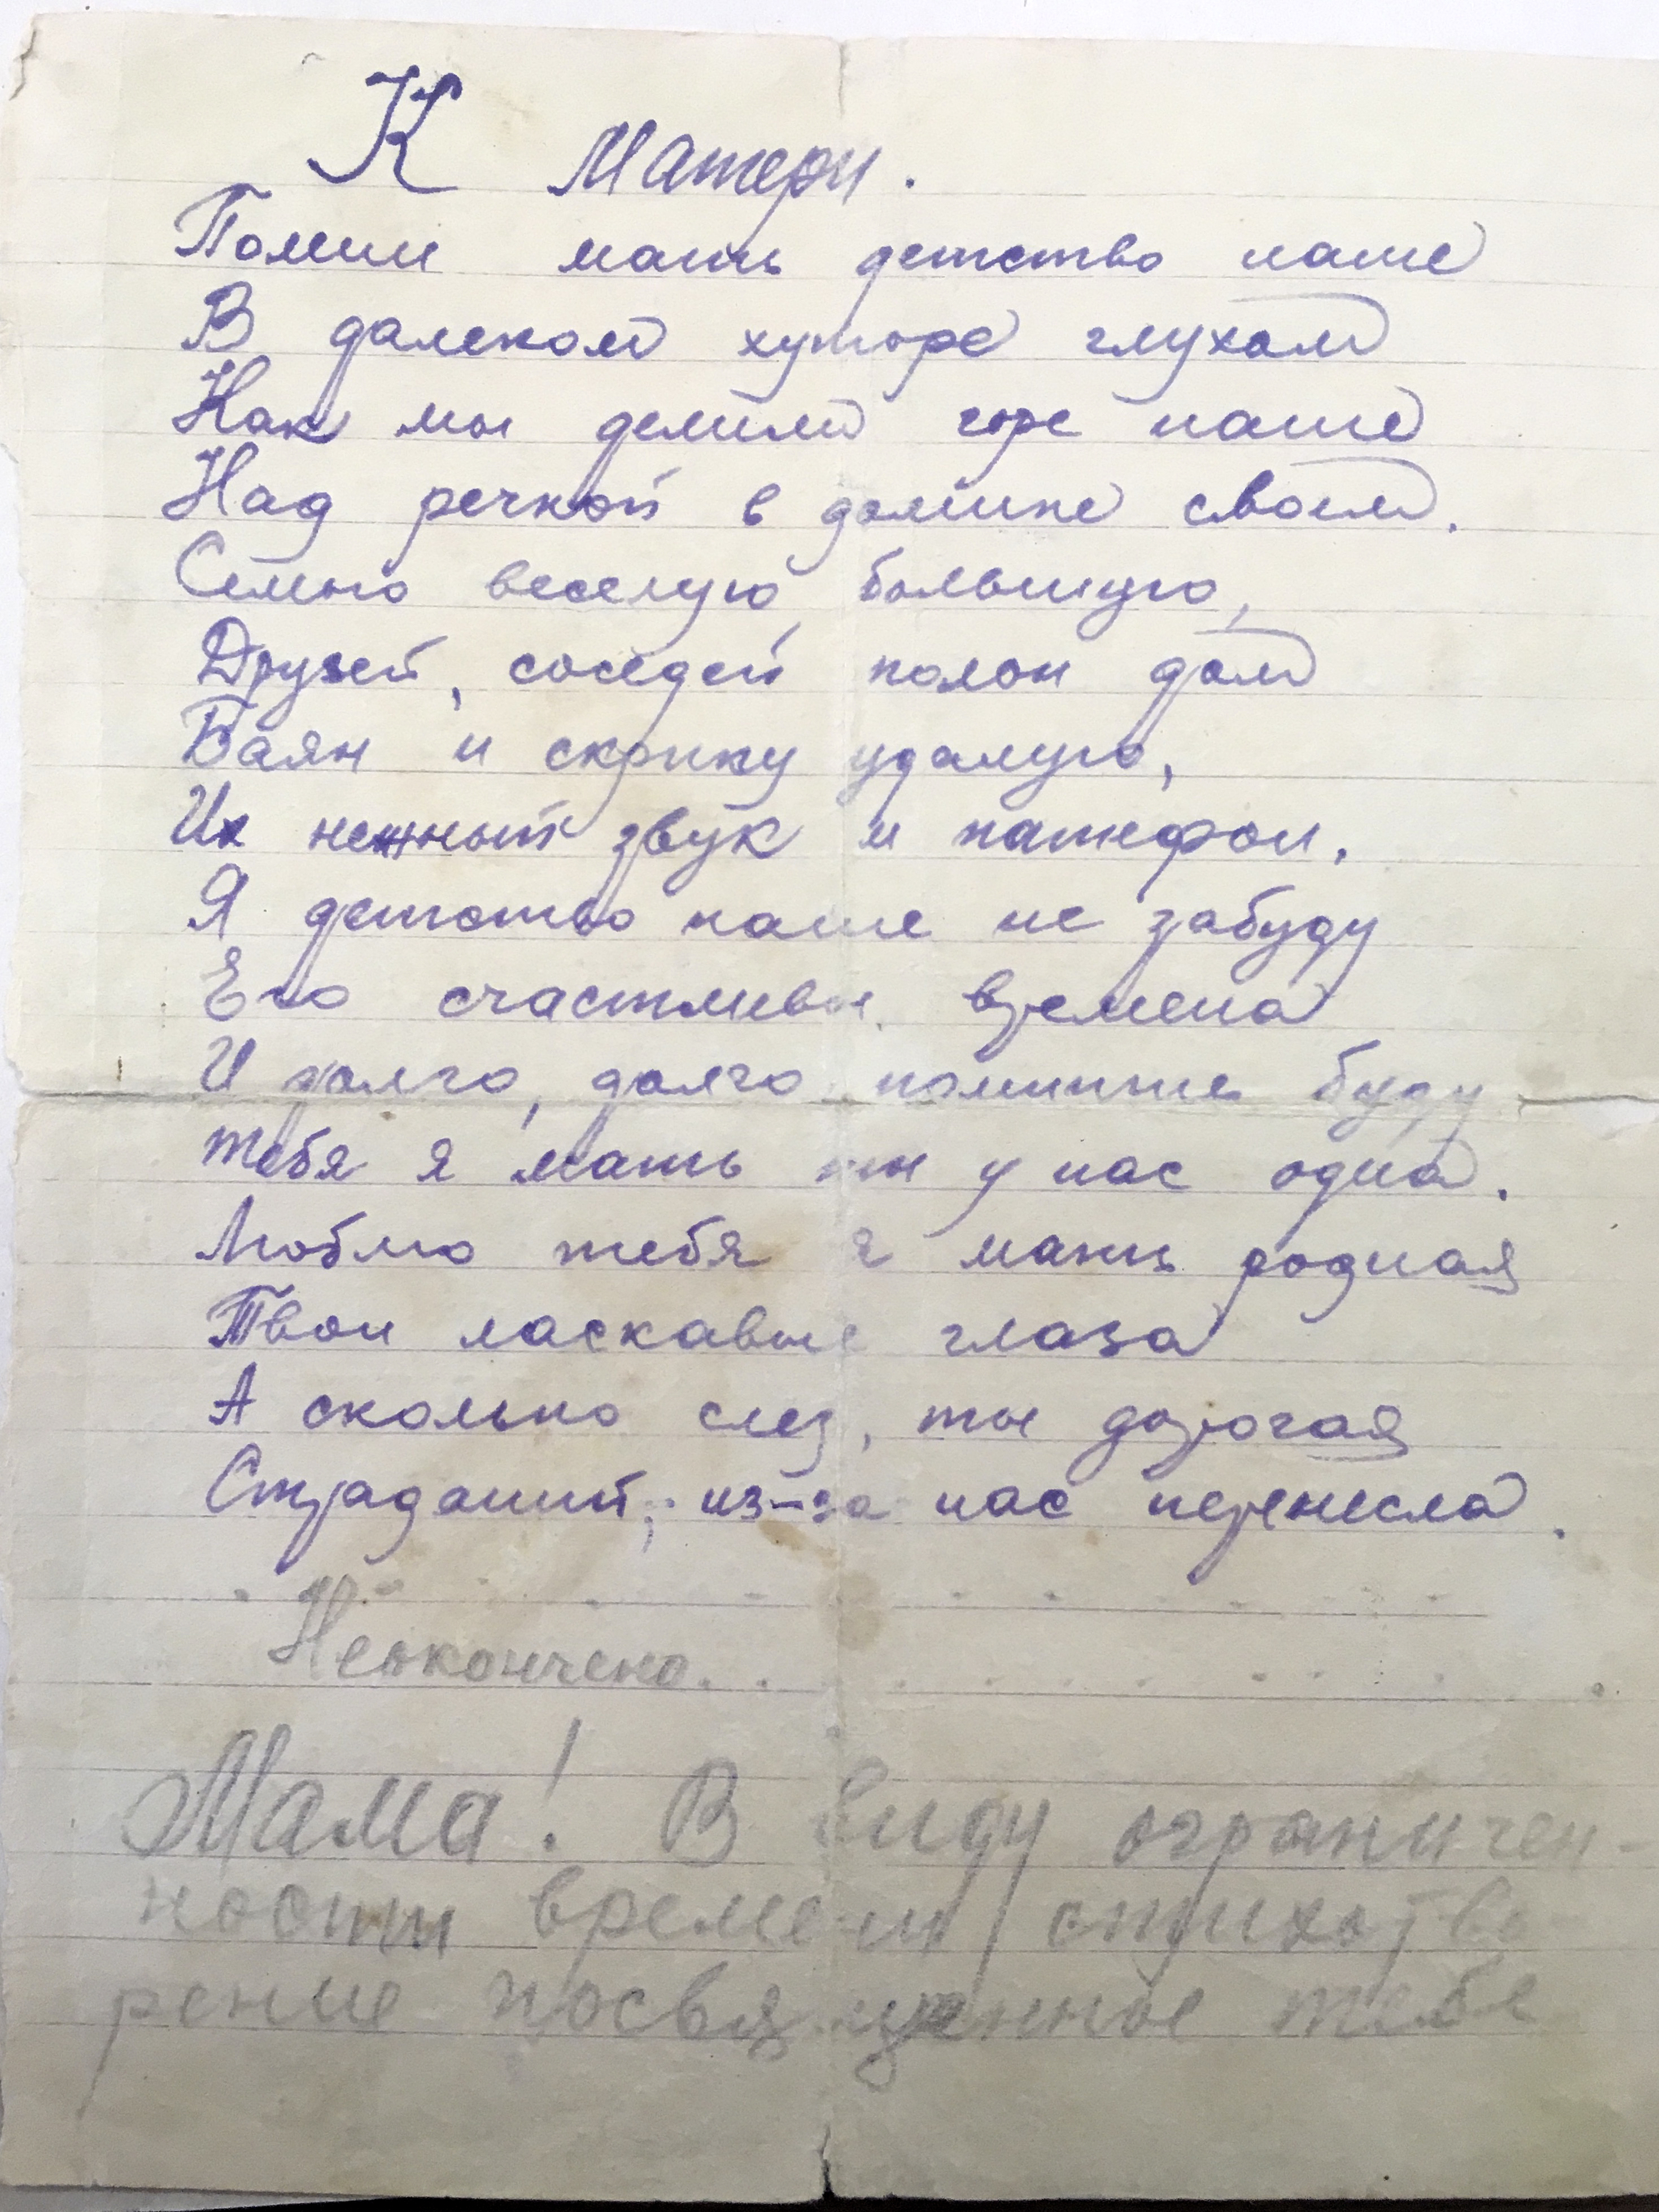 К Матери.
Помни мать детство наше
В далеком хуторе глухом
Как мы делили горе наше
Над речкой в домике своем.
Семью веселую, большую,
Друзей, соседей полон дом
Баян и скрипку удалую,
Их нежный звук и патефон.
Я детство наше не забуду
Его счастливы времена
И долго, долго помнить буду
Тебя я мать ты у нас одна.
Люблю тебя я мать родная
Твои ласкавые глаза
А сколько слез, ты дорогая
Страданий, из-за нас перенесла.
Неокончено...
Мама! В виду ограничен-
ности времени стихотво-
рение посвященное тебе